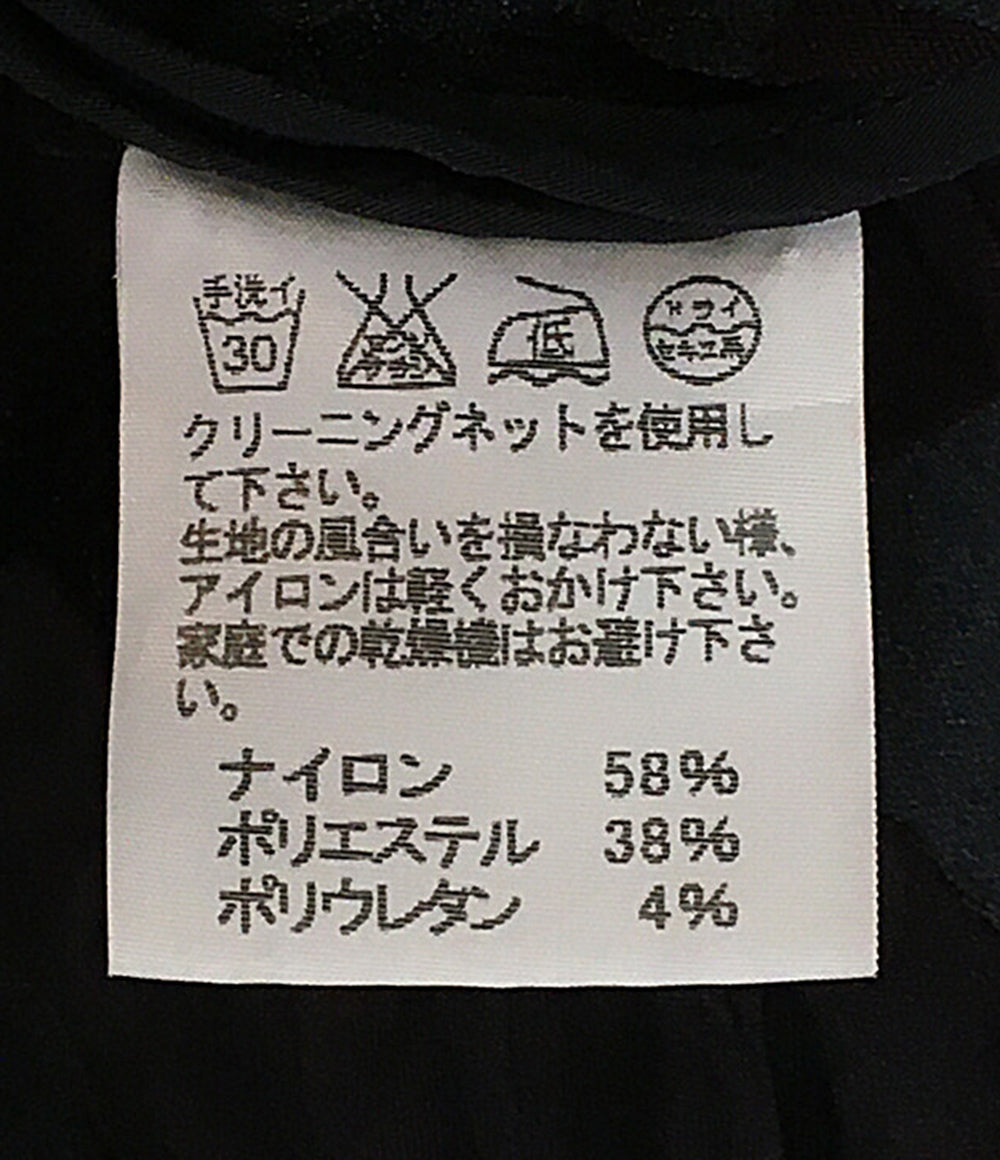 手洗イ
30
エンソ
サラシ
低
ドライ
セキユ系
クリーニングネットを使用し
て下さい。
生地の風合いを損なわない様、
アイロンは軽くおかけ下さい。
家庭での乾燥機はお避け下さ
い。
ナイロン 58%
ポリエステル 38%
ポリウレタン 4%